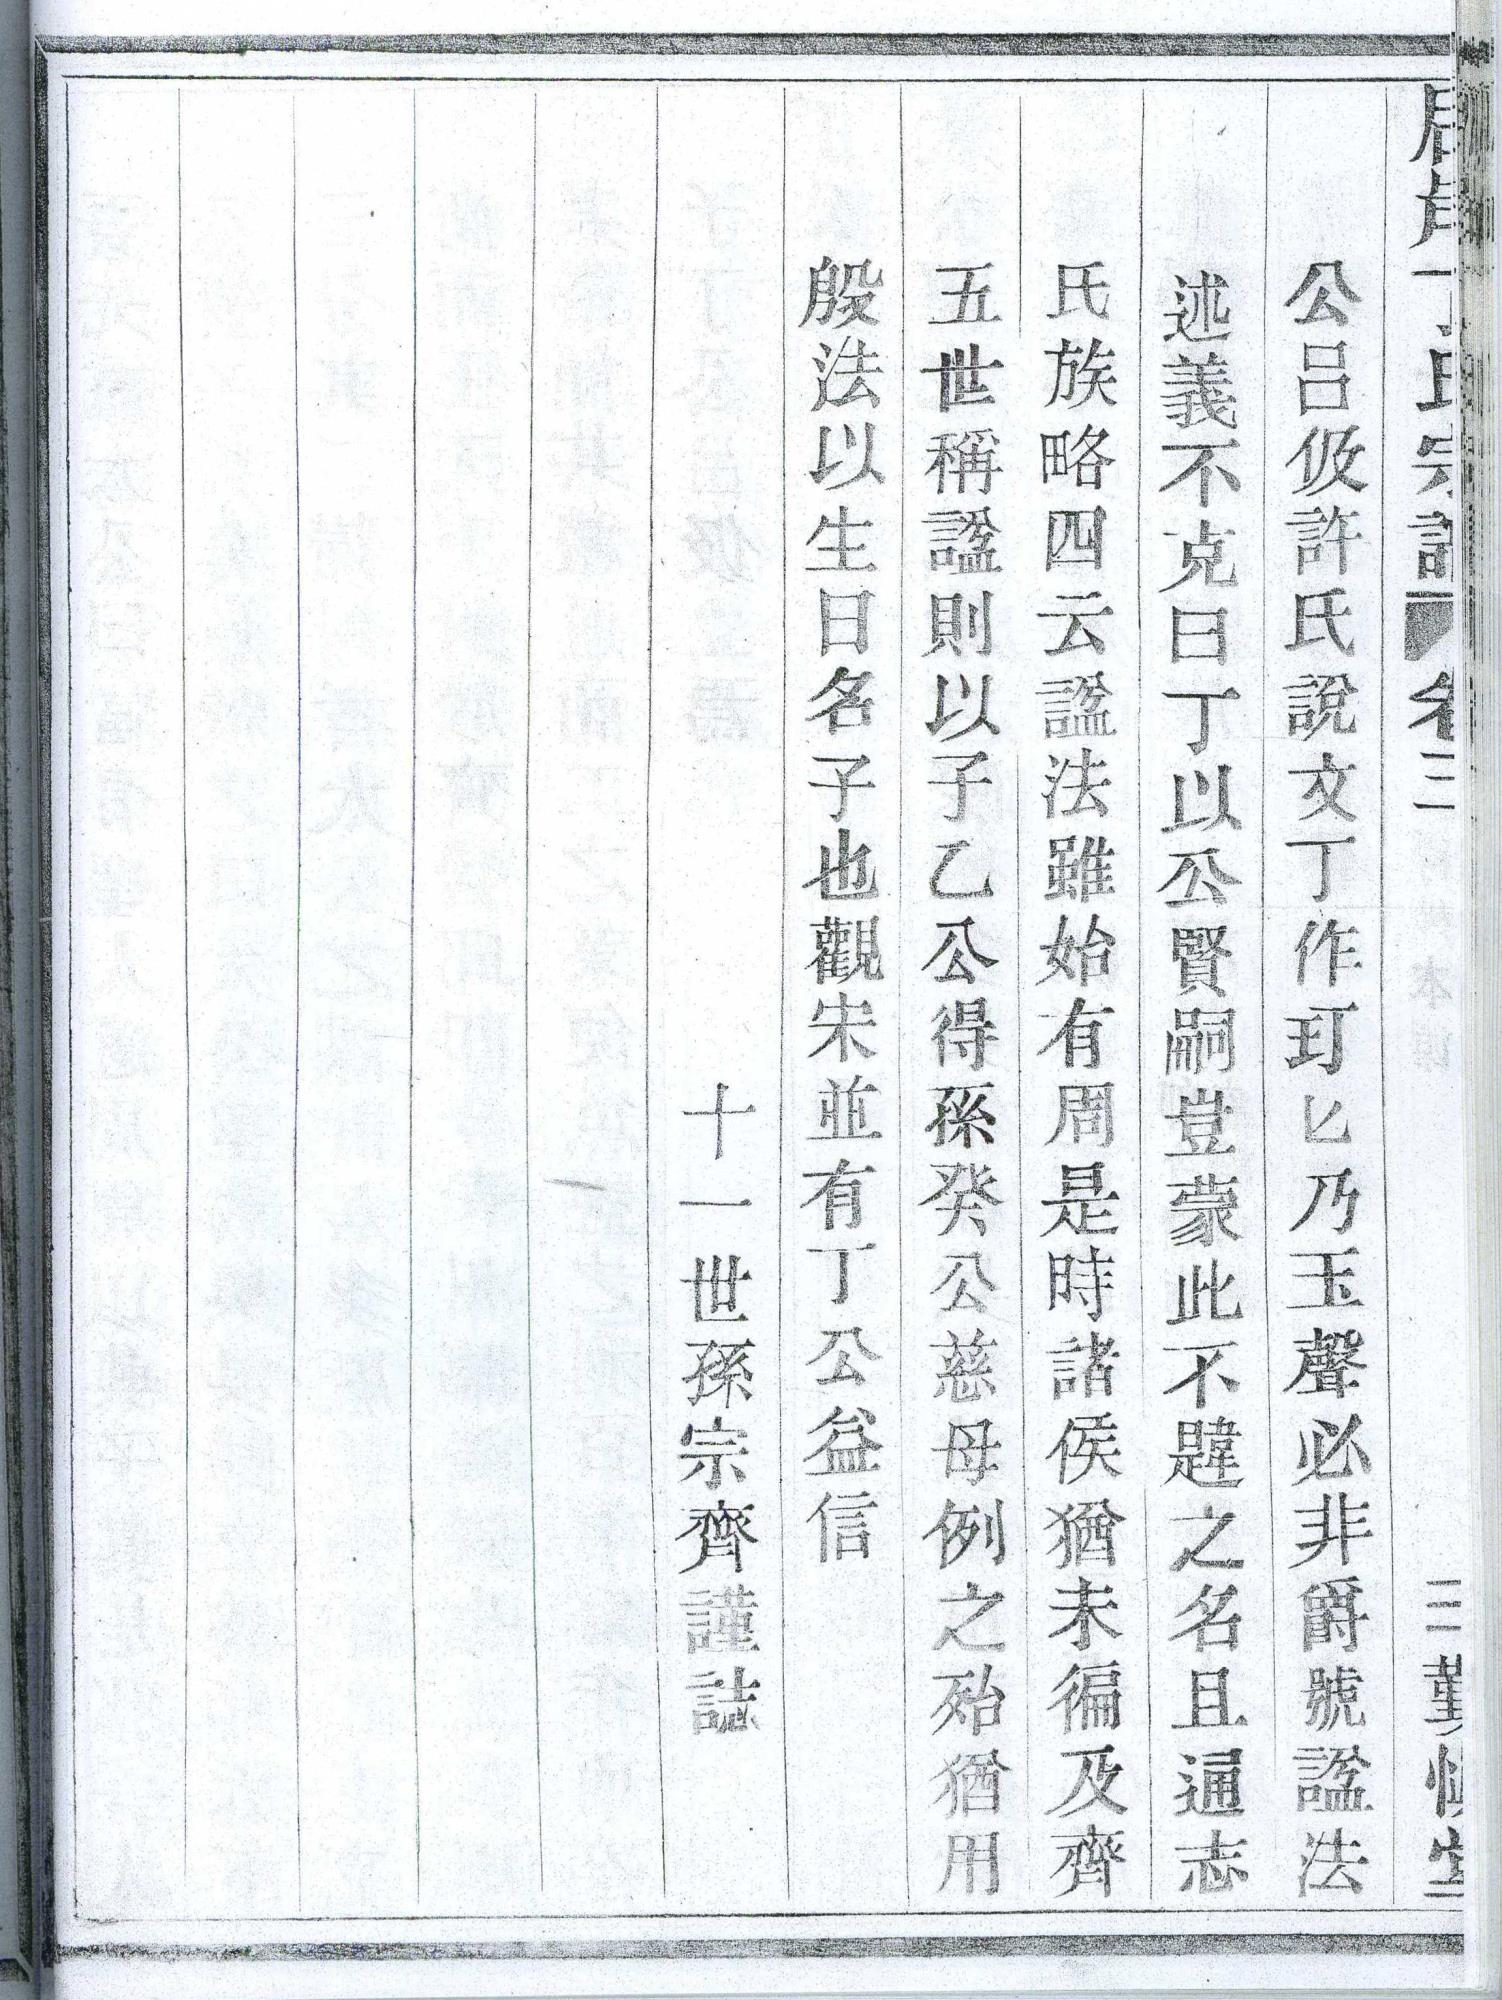 氏宗譜 卷三 三 勤愼堂
公呂伋許氏說文丁作玎匕乃玉聲必非爵號諡法
述義不克曰丁以公賢嗣豈蒙此不韙之名且通志
氏族略四云諡法雖始有周是時諸侯猶未徧及齊
五世稱諡則以子乙公得孫癸公慈母例之殆猶用
殷法以生日名子也觀宋並有丁公益信
十一世孫宗齊謹誌